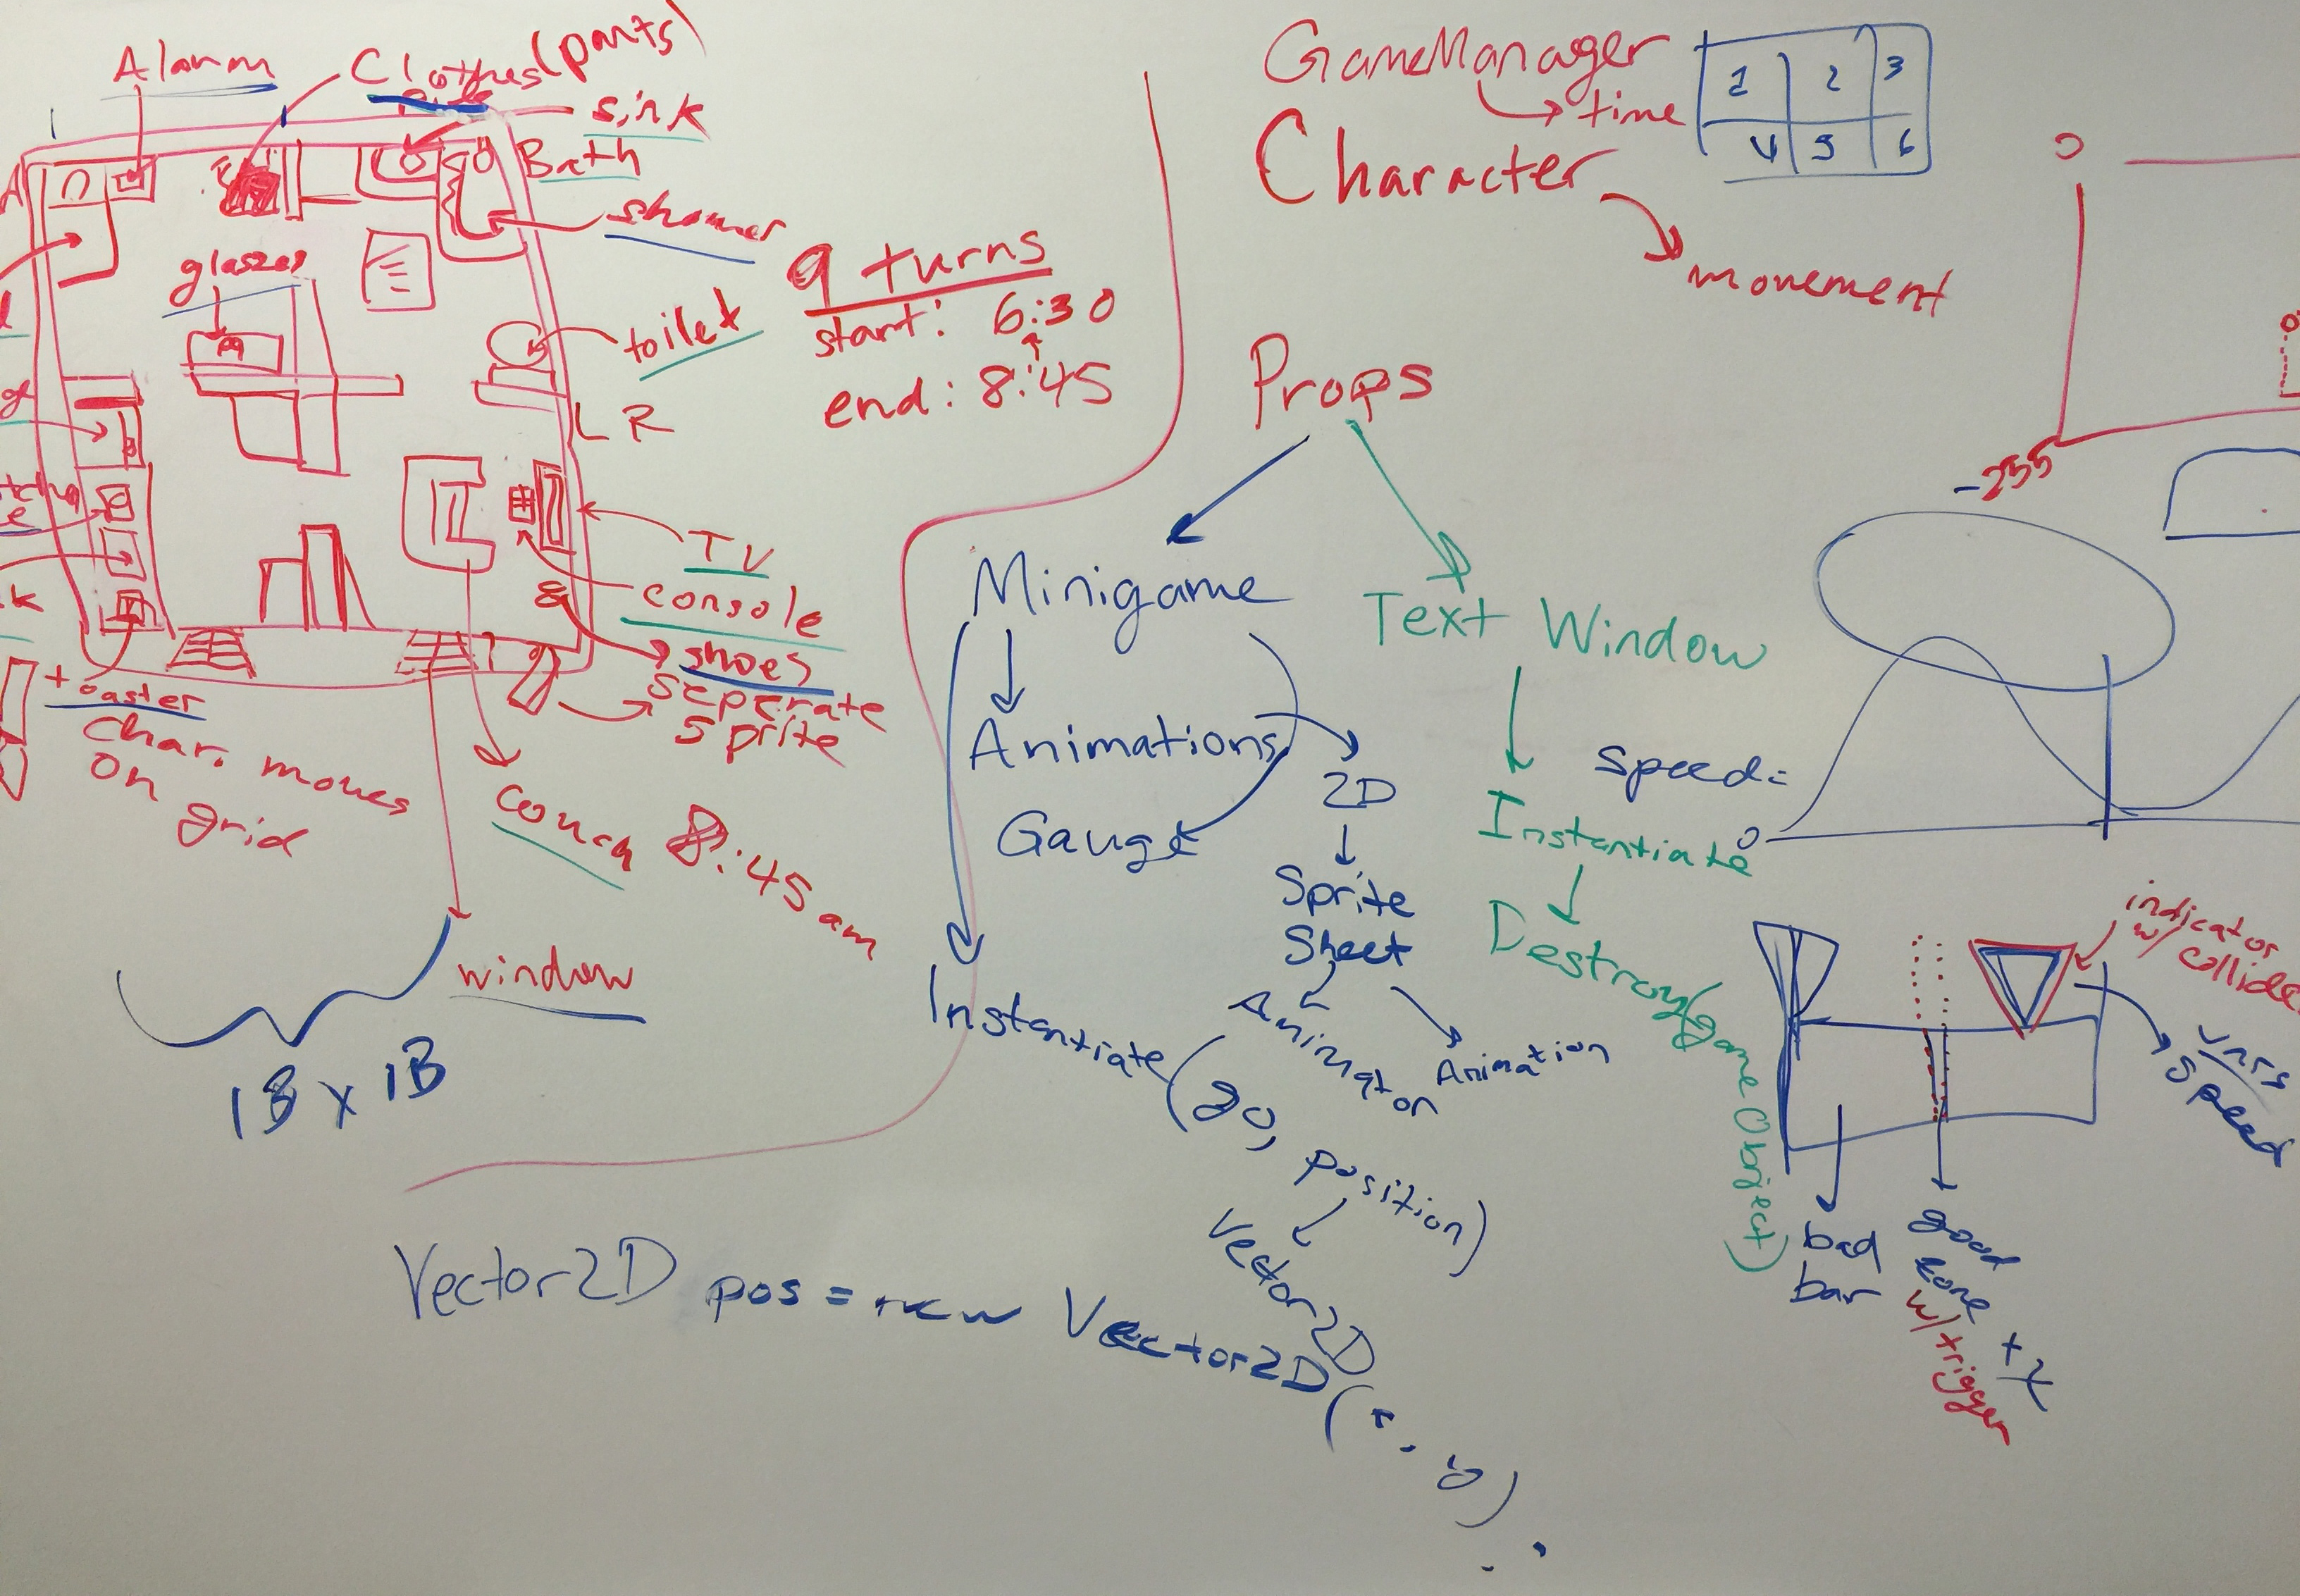 Alarm
Clothes (pants)
sink
Bath
shower
glasses
toilet
L R
TV
console
shoes
seperate
sprite
toaster
Char. moves
on
grid
couch
8:45 am
window
18 x 18
9 turns
start: 6:30
end: 8:45
GameManager
time
1 2 3
4 5 6
Character
movement
Props
Minigame
Animations
Gauge
2D
Sprite
Sheet
Animator
Animation
Instantiate (go, position)
Vector2D
Vector2D pos = new Vector2D (x, y)
Text Window
Instantiate
Destroy(game Object)
-255
speed=
0
indicator
w/
collide
vars
speed
bad
bar
good
zone
w/trigger